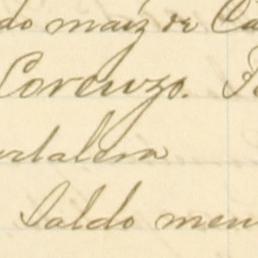 do maíz de Ca
Lorenzo.
rtalera
Saldo men